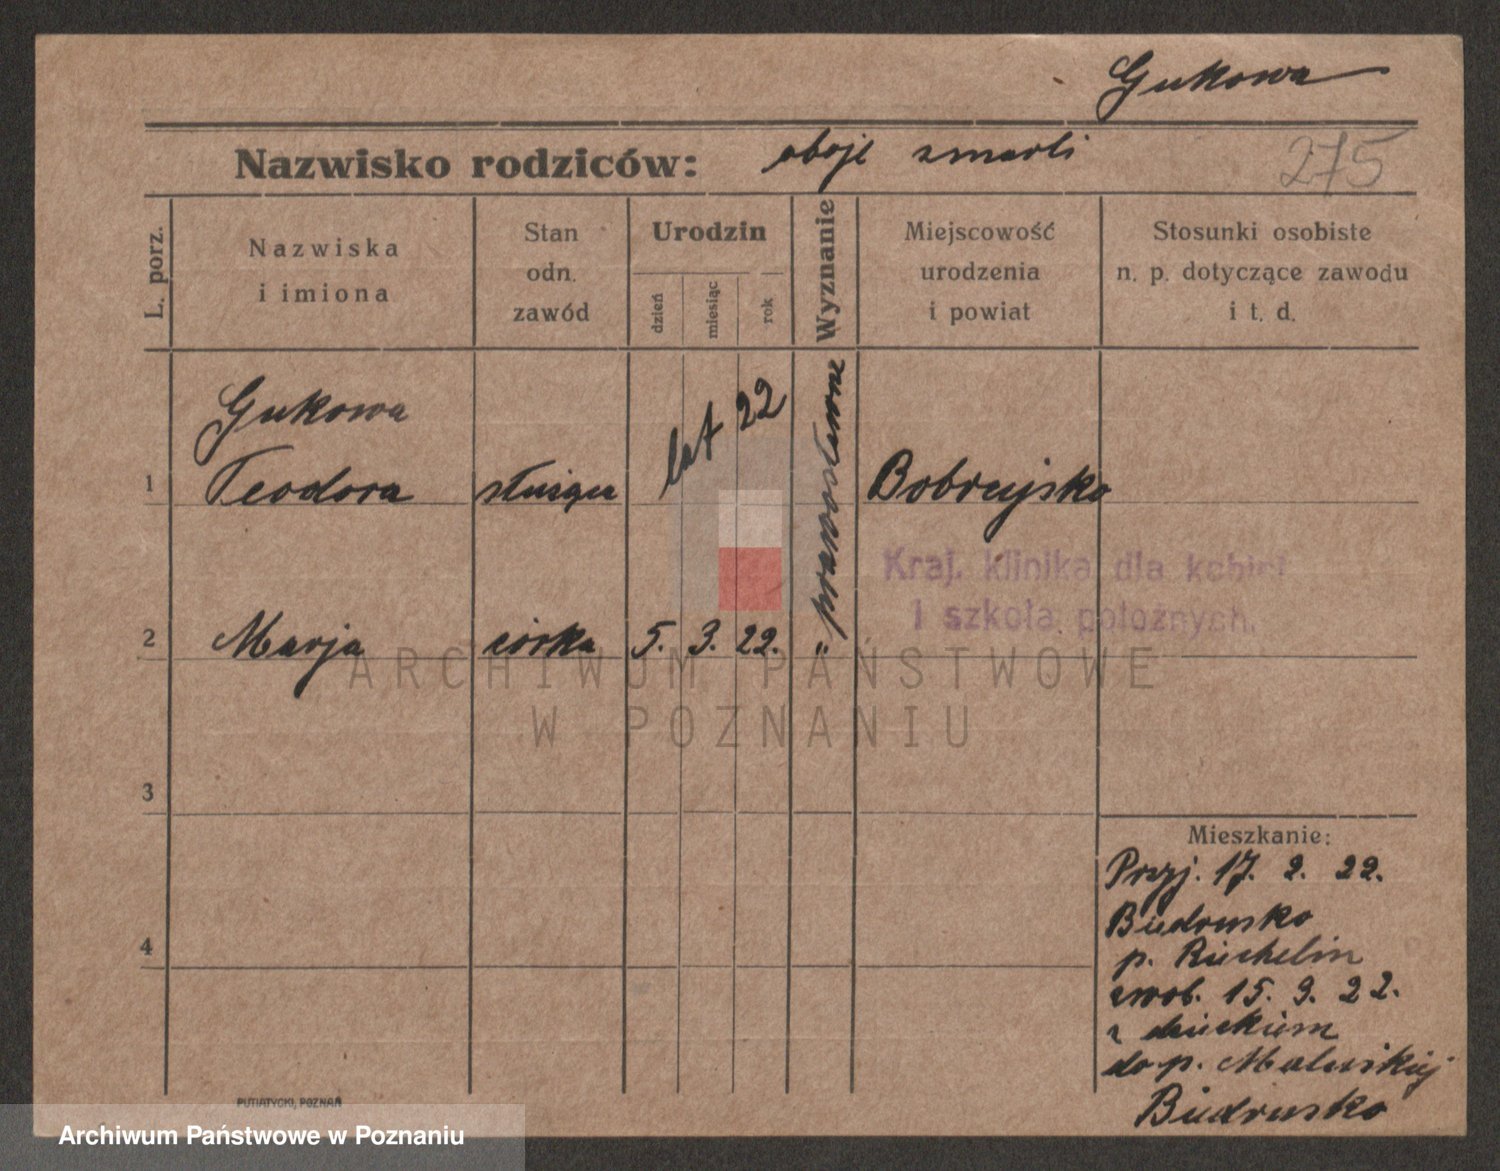 Gukowa
Nazwisko rodziców: oboje zmarli
275
L. porz.
Nazwiska
i imiona
Stan
odn.
zawód
Urodzin
dzień
miesiąc
rok
Wyznanie
Miejscowość
urodzenia
i powiat
Stosunki osobiste
n. p. dotyczące zawodu
i t. d.
Gukowa
1 Teodora służąca lat 22 prawosławne Bobrujsko
Kraj. klinika dla kobiet
i szkoła położnych.
2 Marja córka 5. 3. 22. "
ARCHIWUM PAŃSTWOWE
W POZNANIU
3
4
Mieszkanie:
Przyj. 17. 2. 22.
Biedrusko
p. Richelin
zwob. 15. 3. 22.
z dzieckiem
do p. Malewskiej
Biedrusko
PUTIATYCKI, POZNAŃ
Archiwum Państwowe w Poznaniu